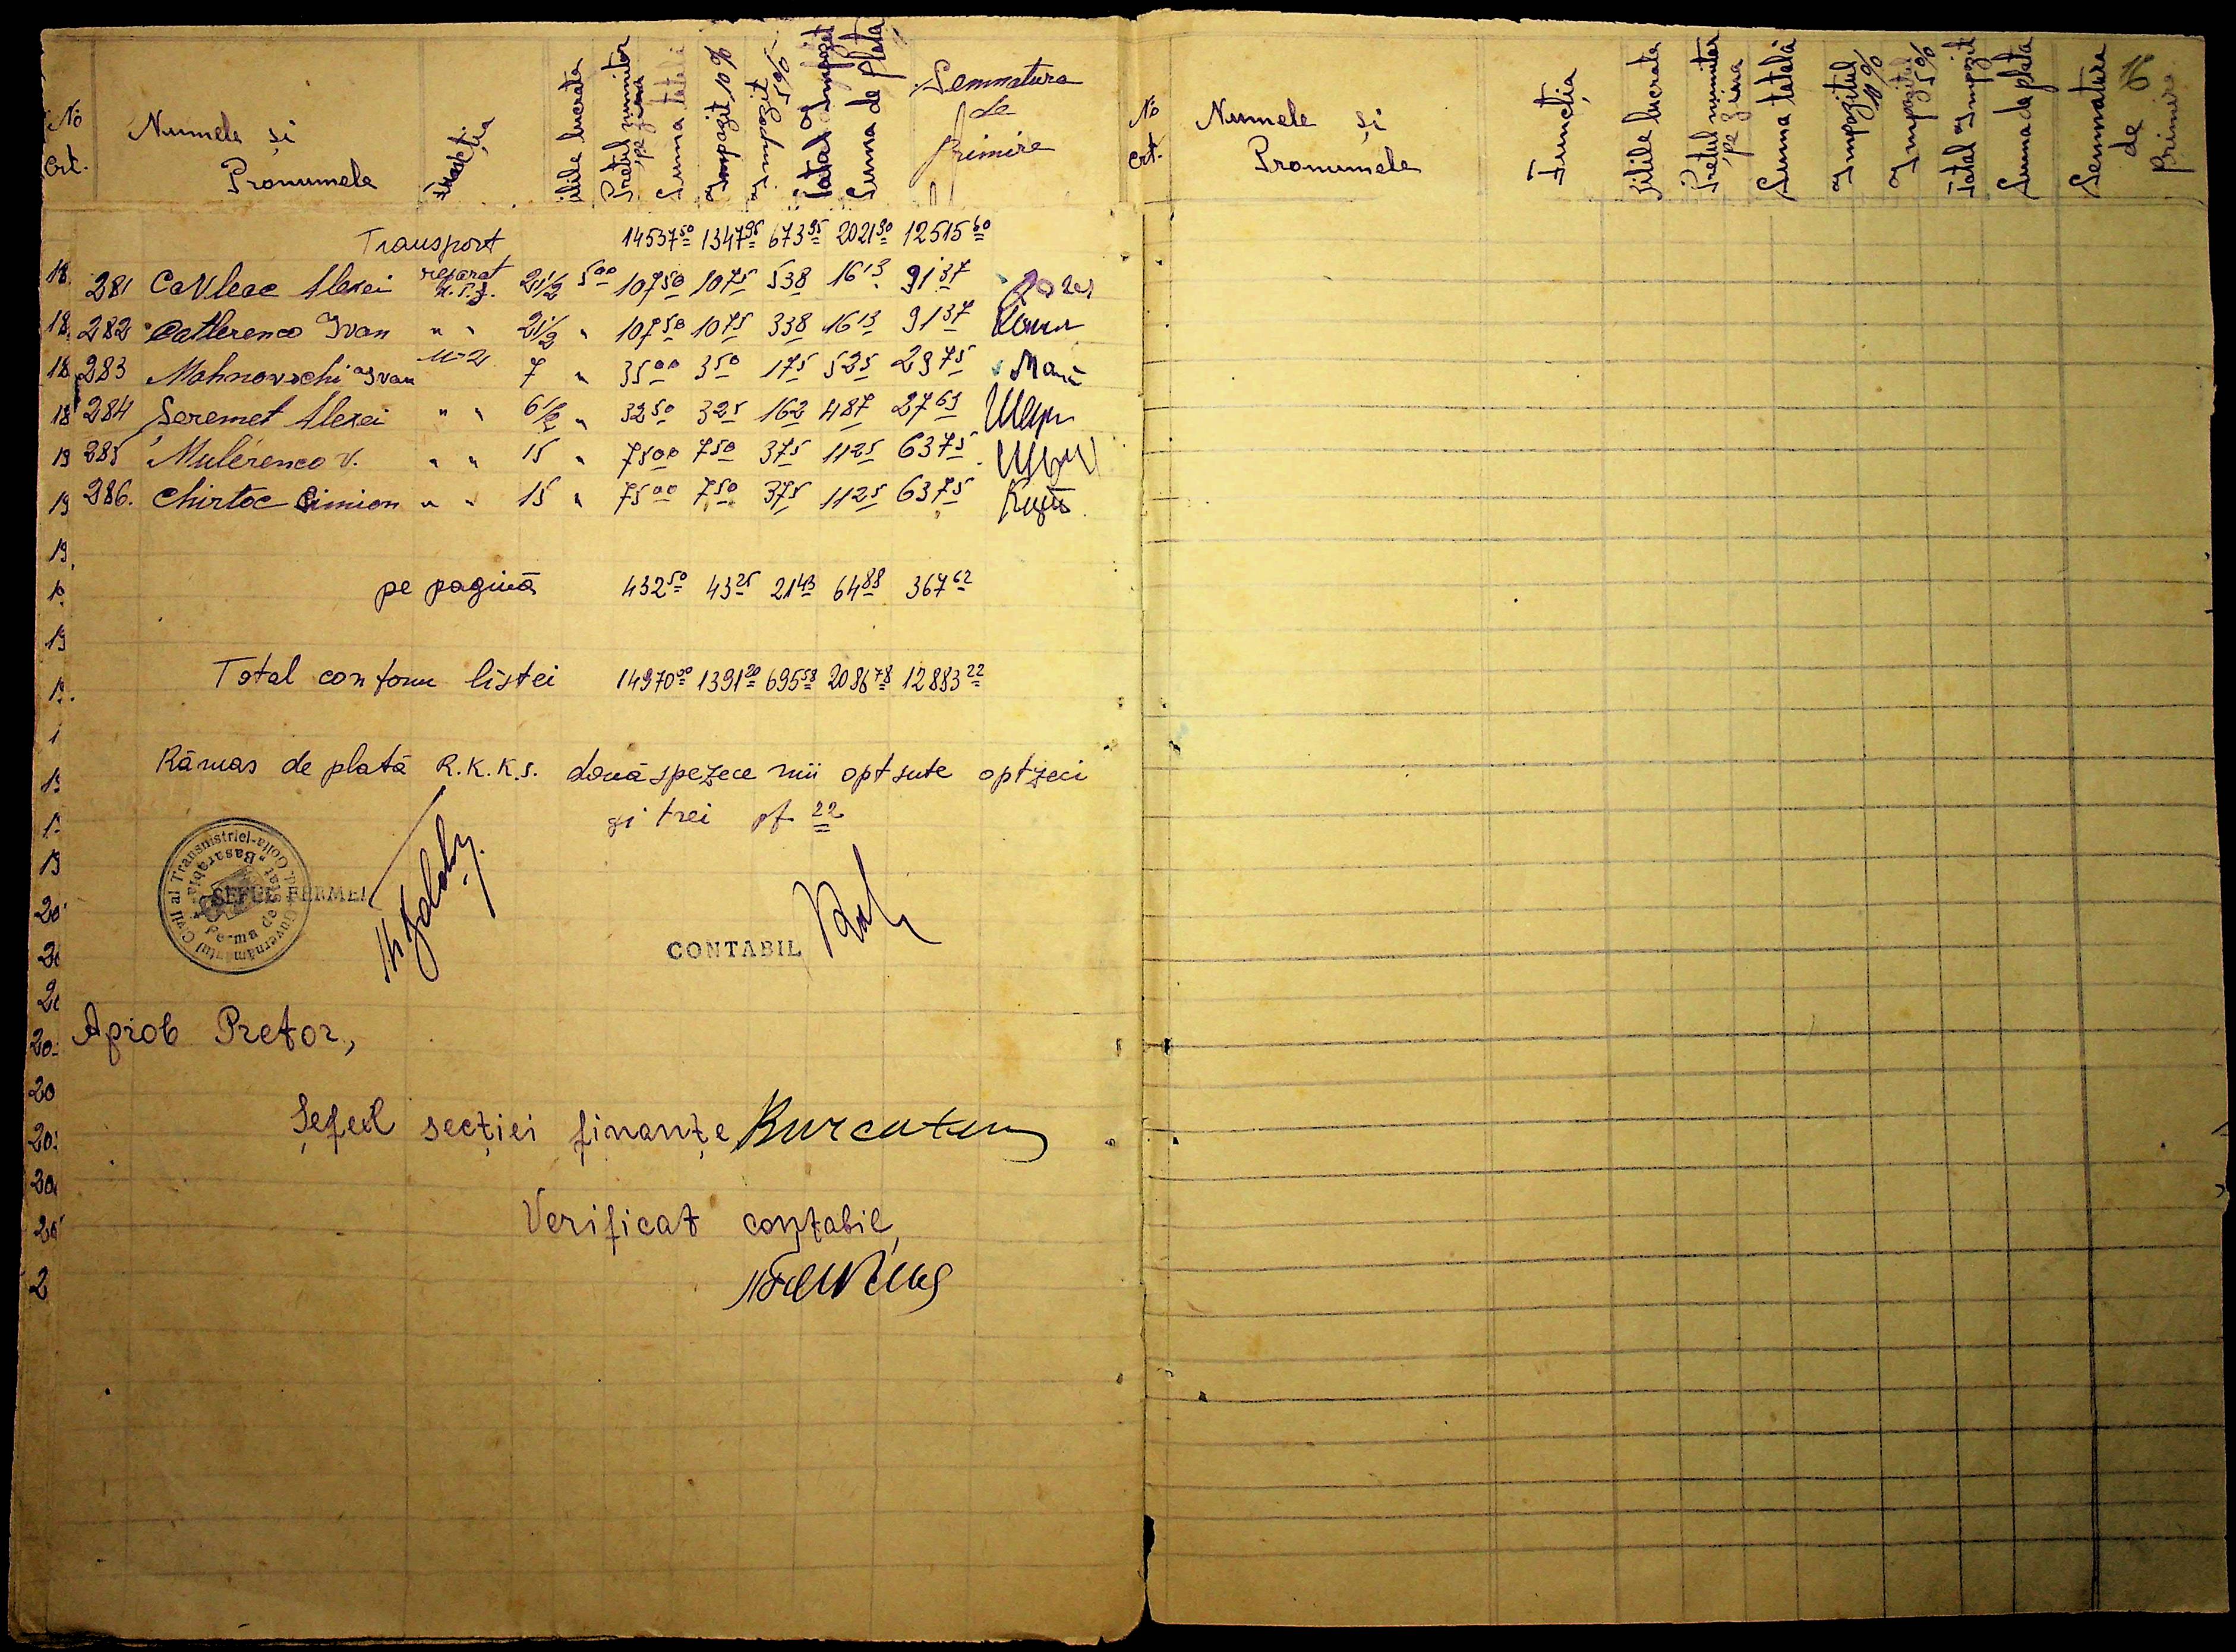 No
crt.
Numele și
Pronumele
Funcția
Zilele lucrate
Prețul nuniitor
pe ziua
Suma totală
Impozit 10%
Impozit
5%
Total Impozit
Suma de plata
Semnatura
de
primire
Transport 14537 50 1347 95 673 95 2021 90 12515 60
18. 281 CaVleac Alexei reparat 21 1/2 5 00 107 50 10 75 5 38 16 13 91 37
18. 282 Catlerenco Ivan " " 21 1/2 " 107 50 10 75 3 38 16 13 91 37
18 283 Mahnovschi Ivan 7 " 35 00 3 50 1 75 5 25 29 75
18 284 Seremet Alexei " " 6 1/2 " 32 50 3 25 1 62 4 87 27 63
19 285 Mulerenco V. " " 15 " 75 00 7 50 3 75 11 25 63 75
19 286. Chirtoc Simion " " 15 " 75 00 7 50 3 75 11 25 63 75
19.
pe pagină 432 50 43 25 21 43 64 88 367 62
19
Total confom listei 14970 00 1391 20 695 58 2086 78 12883 22
Rămas de plată R.K.K.S. douăspezece mii optsute optzeci
și trei pf 22
Guvernământul Civil al Transnistriei-
Jud. Golta
Ferma de Stat "Basarabia"
SEFUL FERMEI
CONTABIL
Aprob Pretor,
Șeful secției finanțe Burcaten
Verificat contabil,
20
20
20
No
crt.
Numele și
Pronumele
Funcția
Zilele lucrate
Prețul nuniitor
pe ziua
Suma totală
Impozitul
10%
Impozitul
5%
Total Impozit
Suma de plata
Semnatura
de
primire
16